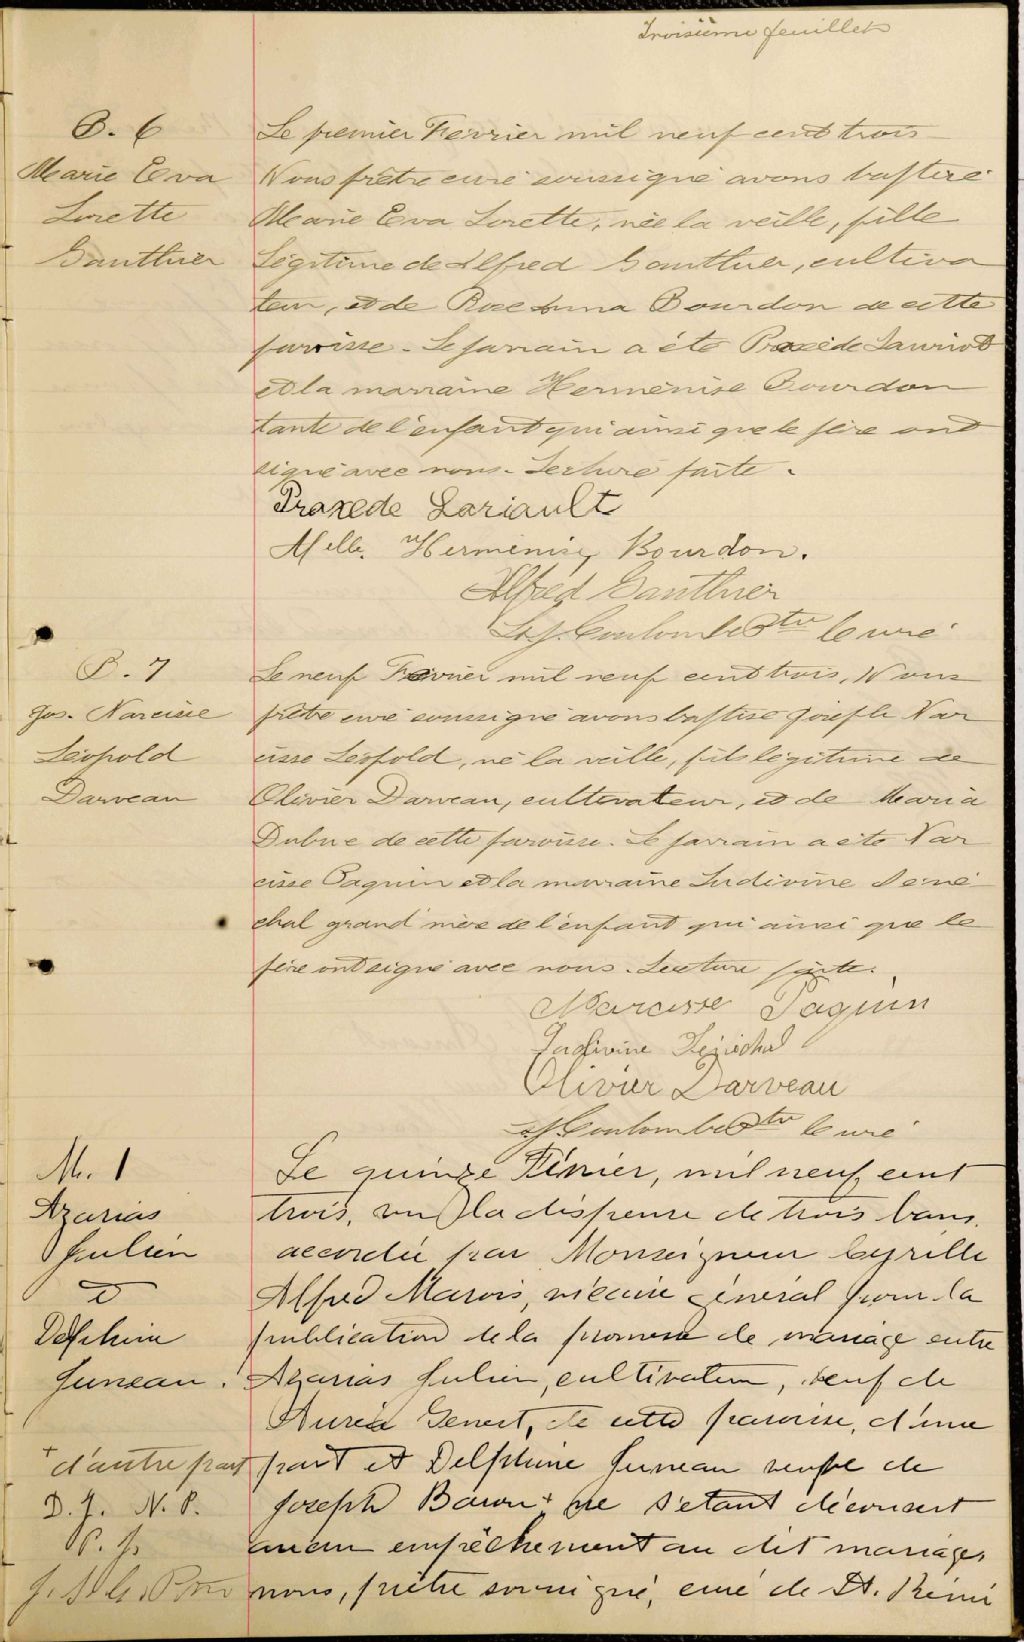 Troisième feuillet
B. 6
Marie Eva
Lorette
Gauthier
Le premier Fevrier mil neuf cent trois
Nous prêtre curé soussigné avons baptisé
Marie Eva Lorette, née la veille, fille
Légitime de Alfred Gauthier, cultiva
teur, et de Rose Anna Bourdon de cette
paroisse - Le parrain a été Praxède Lauriot
et la marraine Herménise Bourdon
tante de l'enfant qui ainsi que le père ont
signé avec nous - Lecture faite.
Praxede Lariault
Melle. Herménise Bourdon.
Alfred Gauthier
Coulombe Ptre Curé
B. 7
Jos. Narcisse
Léopold
Darveau
Le neuf Fevrier mil neuf cent trois, Nous
prêtre curé soussigné avons baptisé Joseph Nar
cisse Léopold, né la veille, fils légitime de
Olivier Darveau, cultivateur, et de Maria
Dubuc de cette paroisse. Le parrain a été Nar
cisse Paquin et la marraine Ludivine Séné
chal grand'mère de l'enfant qui ainsi que le
père ont signé avec nous. Lecture faite.
Narcisse Paquin
Ludivine Sénéchal
Olivier Darveau
Coulombe Ptre Curé
M. 1
Azarias
Julien
et
Delphine
Juneau.
Le quinze Février, mil neuf cent
trois, vu la dispense de trois bans
accordée par Monseigneur Cyrille
Alfred Marois, vicaire général pour la
publication de la promesse de mariage entre
Azarias Julien, cultivateur, veuf de
Auréa Genest, de cette paroisse, d'une
part et Delphine Juneau veuve de
Joseph Baron + ne s'étant découvert
aucun empêchement au dit mariage
nous, prêtre soussigné, curé de St. Rémi
+ d'autre part
D. J. N. P.
P. J.